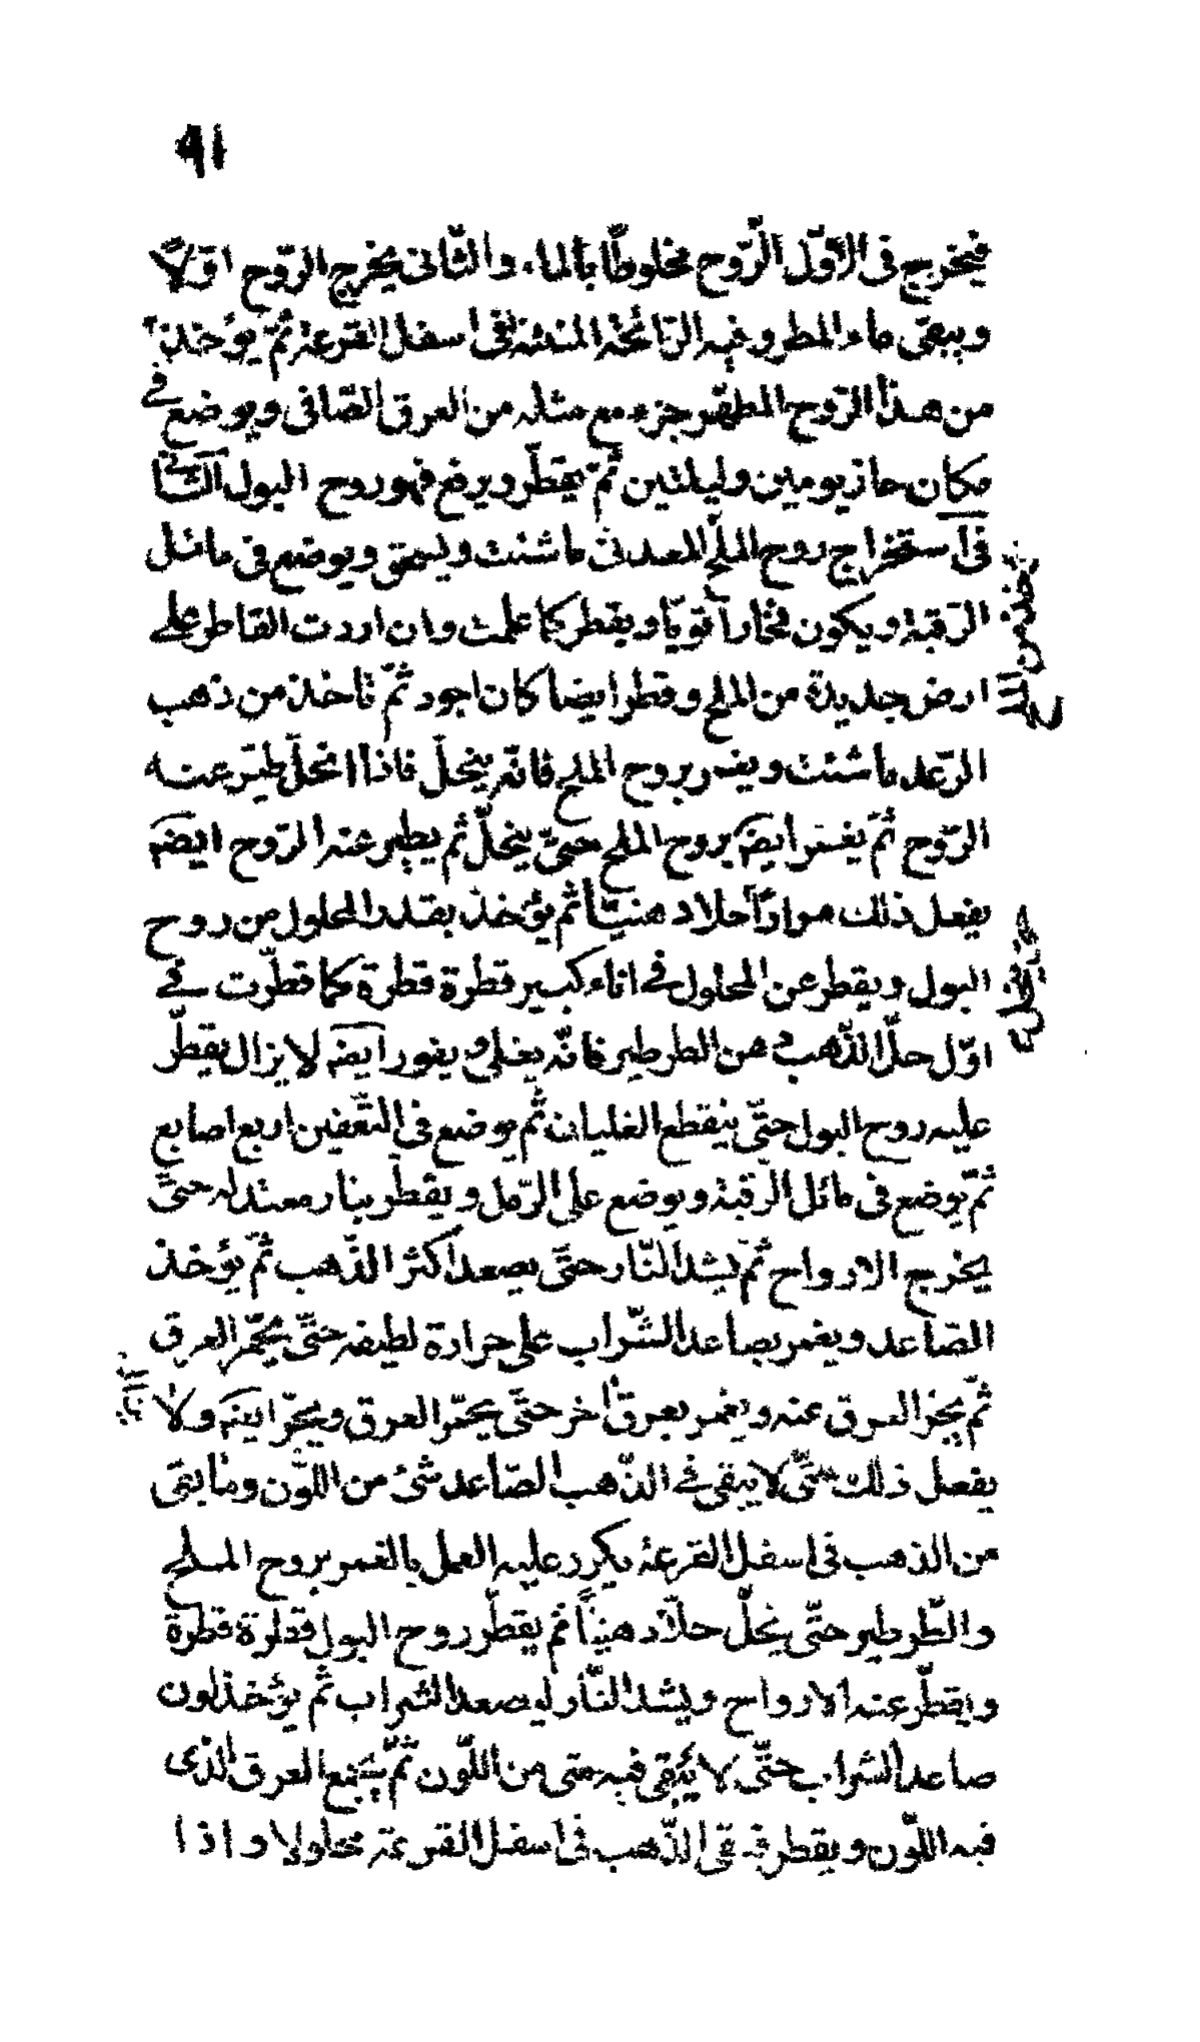 ٩١
فيخرج فى الاوّل الرّوح مخلوطًا بالماء والثّانى يخرج الرّوح اوّلاً
ويبقى ماء المطر وفيه الرّائحة المنتنة فى اسفل القرعة ثمّ يؤخذ
من هذا الرّوح المطهّر جزء مع مثله من العرق الصّافى ويوضع فى
مكان حار يومين وليلتين ثمّ يقطّر ويرفع فهو روح البول الثّالث
فى استخراج روح الملح المعدنى ما شئت ويسحق ويوضع فى مائل
الرّقبة ويكون فخاراً قويّا ويقطر كما علمت وان اردت القاطر على
ارض جديدة من الملح وقطر ايضا كان اجود ثمّ تاخذ من ذهب
الرّعد ما شئت ويغمر بروح الملح فانّه ينحلّ فاذا انحلّ طيّر عنه
الرّوح ثمّ يغمر ايضه بروح الملح حتىّ ينحلّ ثم يطير عنه الرّوح ايضه
يفعل ذلك مراراً حلا دهنيّاً ثم يؤخذ بقدر المحلول من روح
البول ويقطر عن المحلول فى اناء كبير قطرة قطرة كما قطّرت فى
اوّل حلّ الذّهب من الطرطير فانّه يغلى ويفور ايضه لا يزال يقطّر
عليه روح البول حتّى ينقطع الغليان ثم يوضع فى التّعفين اربع اصابع
ثمّ يوضع فى مائل الرّقبة ويوضع على الرّمل ويقطّر بنار معتدله حتىّ
يخرج الارواح ثمّ يشد النّار حتىّ يصعد اكثر الذّهب ثمّ يؤخذ
الصّاعد ويغمر بصاعد الشّراب على حرارة لطيفه حتىّ يحمّر العرق
ثمّ يجرّ العرق عنه ويغمر بعرق اخر حتىّ يحمّر العرق ويجرّ ايضه ولا
يفعل ذلك حتىّ لا يبقى فى الذّهب الصّاعد شئ من اللّون وما بقى
من الذهب فى اسفل القرعة يكرر عليه العمل بالغمر بروح الملح
والطّرطير حتّى ينحلّ حلّاً دهنيّاً ثم يقطّر روح البول قطرة قطرة
ويقطّر عنه الارواح ويشد النّار ليصعد الشراب ثم يؤخذ لون
صاعد الشراب حتّى لا يبقى فيه شى من اللّون ثمّ يجمع العرق الذى
فيه اللّون ويقطر فيبقى الذّهب فى اسفل القرعة محلولا واذا